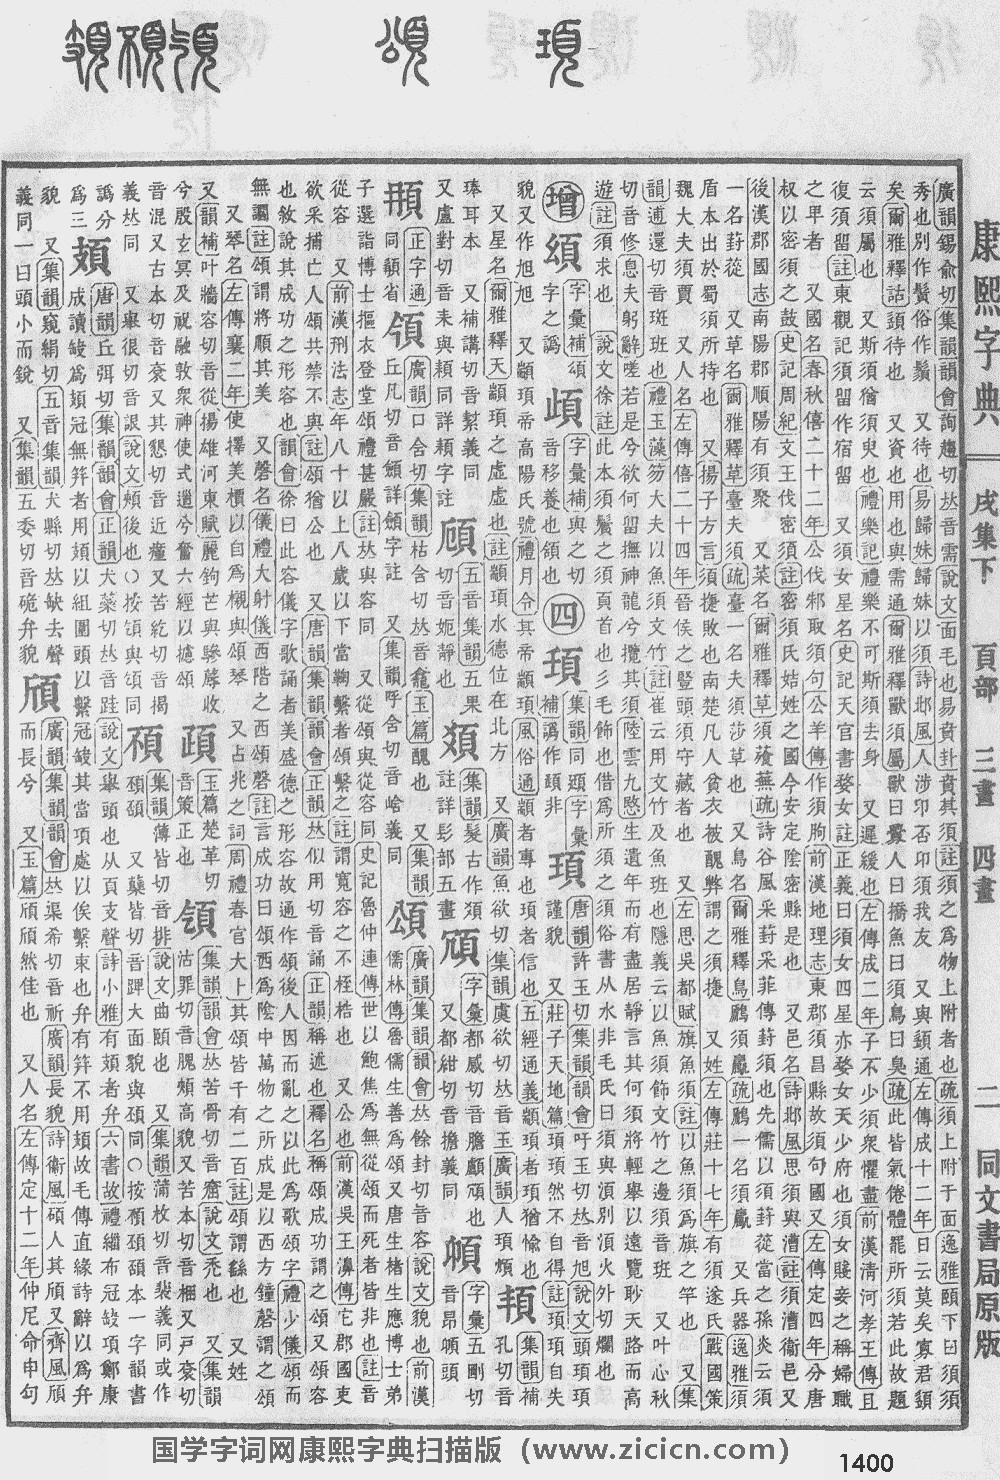 康熙字典 戌集下 頁部 三畫 四畫 二 同文書局原版
廣韻錫俞切集韻韻會詢趨切𠀤音需說文面毛也易賁卦賁其須註須之爲物上附者也疏須上附于面逸雅頤下曰須須
秀也別作鬚俗作鬚 又待也易歸妹歸妹以須詩邶風人涉卬否卬須我友 又與䇓通左傳成十二年日云莫矣寡君須
矣爾雅釋詁䇓待也 又資也用也與需通爾雅釋獸須屬獸曰釁人曰撟魚曰須鳥曰狊疏此皆氣倦體罷所須若此故題
云須屬也 又斯須猶須臾也禮樂記禮樂不可斯須去身 又遲緩也左傳成二年子不少須衆懼盡前漢淸河孝王傳且
復須留註東觀記須留作宿留 又須女星名史記天官書婺女註正義曰須女四星亦婺女天少府也須女賤妾之稱婦職
之𤰞者 又國名春秋僖二十二年公伐邾取須句公羊傳作須朐前漢地理志東郡須昌縣故須句國又左傳定四年分唐
權以密須之鼓史記周紀文王伐密須註密須氏姞姓之國今安定陰密縣是也 又邑名詩邶風思須與漕註須漕衞邑又
後漢郡國志南陽郡順陽有須聚 又菜名爾雅釋草須薞蕪疏詩谷風采葑采菲傳葑須也先儒以須葑蓯當之孫炎云須
一名葑蓯 又草名爾雅釋草臺夫須疏臺一名夫須莎草也 又鳥名爾雅釋鳥鸍須鸁疏鸍一名須鸁 又兵器逸雅須
盾本出於蜀須所持也 又揚子方言須捷敗也南楚凡人貧衣被醜弊謂之須捷 又姓左傳莊十七年有須遂氏戰國策
魏大夫須賈 又人名左傳僖二十四年晉侯之豎頭須守藏者也 又左思吳都賦旗魚須註以魚須爲旗之竿也 又集
韻逋還切音班班也禮玉藻笏大夫以魚須文竹註崔云用文竹及魚班也隱義云以魚須飾文竹之邊須音班 又叶心秋
切音修息夫躬辭嗟若是兮欲何留撫神龍兮攬其須陸雲九愍生遺年而有盡居靜言其何須將輕舉以遠覽眇天路而高
遊註須求也 說文徐註此本須鬢之須頁首也彡毛飾也借爲所須之須俗書从水非毛氏曰須與湏別湏火外切爛也
增 頌 字彙補頌字之譌
四 頊 集韻同䪼字彙補譌作頿非 頊 唐韻許玉切集韻韻會吁玉切𠀤音旭說文頭頊頊謹貌 又莊子天地篇頊頊然不自得註頊頊自失
貌又作旭旭 又顓頊帝高陽氏號禮月令其帝顓頊風俗通顓者專也頊者信也五經通義顓頊者頊猶愉也 𩑔 集韻補
又星名爾雅釋天顓頊之虛虛也註顓頊水德位在北方 又廣韻魚欲切集韻虞欲切𠀤音玉廣韻人頊頊 孔切音
琫耳本 又補講切音㨍義同 五音集韻五果 集韻髮古作䫇 字彙都感切音膽顧頑也 字彙五剛切
又盧對切音耒與頪同詳頪字註 切音妮靜也 註詳髟部五畫 又都紺切音擔義同 音昂頭頭
正字通同顓省 領 廣韻口含切集韻枯含切𠀤音龕玉篇醜也 又集韻 頌 廣韻集韻韻會𠀤餘封切音容說文貌也前漢
丘凡切音顩詳顩字註 又集韻呼含切音㟏義同 儒林傳魯儒生善爲頌又唐生楮生應博士弟
子選詣博士摳衣登堂頌禮甚嚴註𠀤與容同 又從頌與從容同史記魯仲連傳世以鮑焦爲無從頌而死者皆非也註音
從容 又前漢𠛬法志年八十以上八歲以下當鞠繫者頌繫之註謂寬容之不桎梏也 又公也前漢吳王濞傳它郡國吏
欲來捕亡人頌共禁不與註頌猶公也 又唐韻集韻韻會正韻𠀤似用切音誦正韻稱述也釋名稱頌成功謂之頌又頌容
也敘說其成功之形容也韻會徐曰此容儀字歌誦者美盛德之形容故通作頌後人因而亂之以此爲歌頌字禮少儀頌而
無讇註頌謂將順其美 又磬名儀禮大射儀西階之西頌磬註言成功曰頌西爲陰中萬物之所成是以西方鐘磬謂之頌
又琴名左傳襄二年使擇美檟以自爲櫬與頌琴 又占兆之詞周禮春官大卜其頌皆千有二百註頌謂繇也 又姓
又韻補叶牆容切音從揚雄河東賦麗鉤芒與驂蓐收 玉篇楚革切音策正也 集韻韻會𠀤苦骨切音窟說文禿也 又集韻
兮服玄冥及祝融敦衆神使式道兮奮六經以攄頌 沽罪切音䫥頰高貌又苦本切音梱又戸袞切
音混又古本切音袞又其懇切音近癨又苦紇切音揭 集韻傳皆切音排說文曲頤也 又集韻蒲枚切音裴義同或作
義𠀤同 又舉很切音詪說文頰後也〇按頎與頎同 又櫱皆切音踝大面貌與䫊同〇按䫊䫊本一字韻書
譌分爲三 䫌 唐韻丘弭切集韻韻會正韻犬蘂切𠀤音跬說文舉頭也从頁支聲詩小雅有頍者弁六書故禮緇布冠缺項鄭康
成讀缺爲頍冠無笄者用頍以組圍頭以繫冠缺其當項處以俟繫束也弁有笄不用頍故毛傳直緣詩辭以爲弁
貌 又集韻窺絹切五音集韻犬縣切𠀤缺去聲 頎 廣韻集韻韻會𠀤渠希切音祈廣韻長貌詩衞風碩人其頎又齊風頎
義同一曰頭小而銳 又集韻五委切音硊弁貌 而長兮 又玉篇頎頎然佳也 又人名左傳定十二年仲尼命申句
国学字词网康熙字典扫描版（www.zicicn.com）
1400